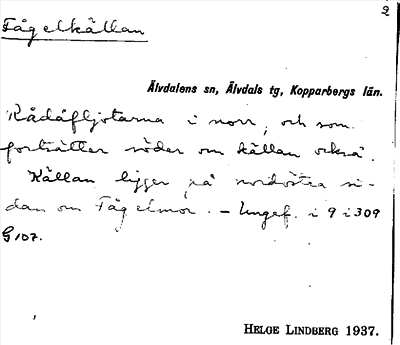 2
Fågelkällan
Älvdalens sn, Älvdals tg, Kopparbergs län.
Rådåfljotarna i norr, och som
fortsätter söder om källan också.
Källan ligger på nordöstra si-
dan om Fågelmor. – Ungef. i 9 i 309
G 107.
HELGE LINDBERG 1937.